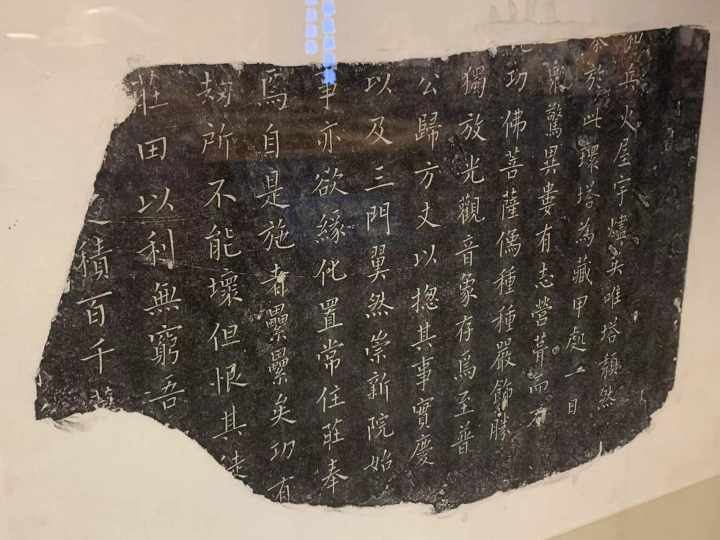 兵火屋宇燼矣唯塔頹然
於此環塔為藏甲處一日
驚異婁有志營葺而不
功佛菩薩僞種種嚴飾勝
獨放光觀音象存焉至普
公歸方丈以揔其事實慶
以及三門翼然崇新院始
事亦欲緣化置常住莊奉
焉自是施者纍纍矣功有
劫所不能壞但恨其徒
莊田以利無窮吾
之積百千